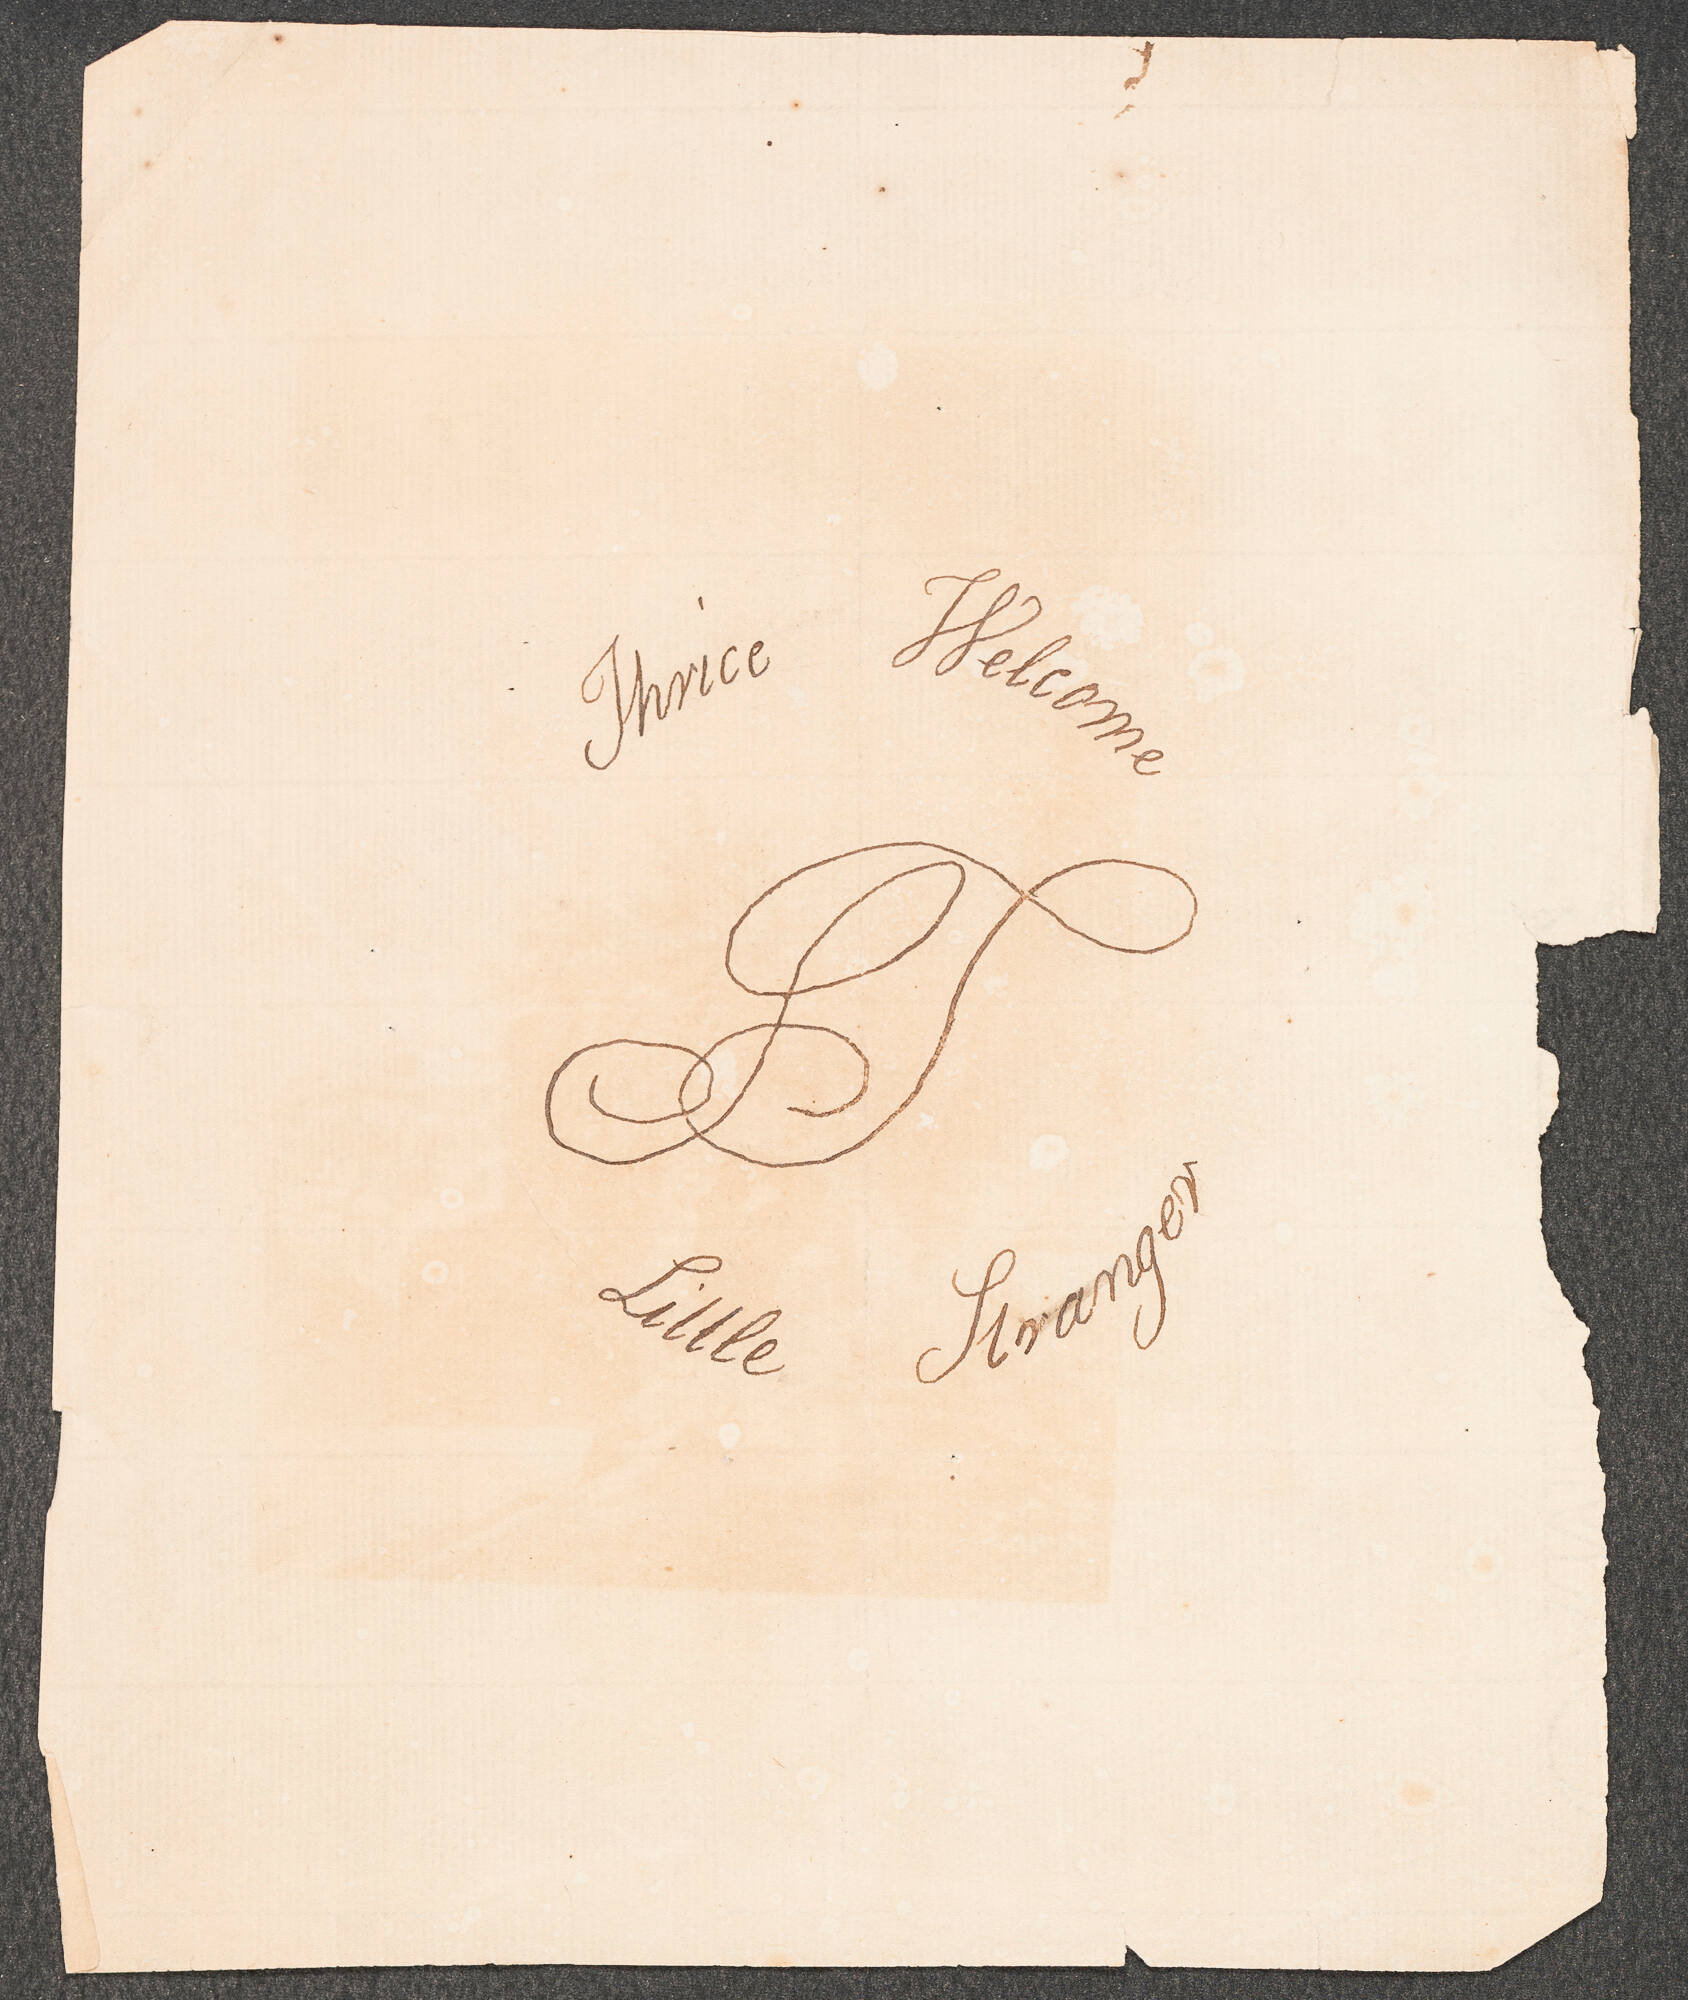 Thrice Welcome
Little Stranger